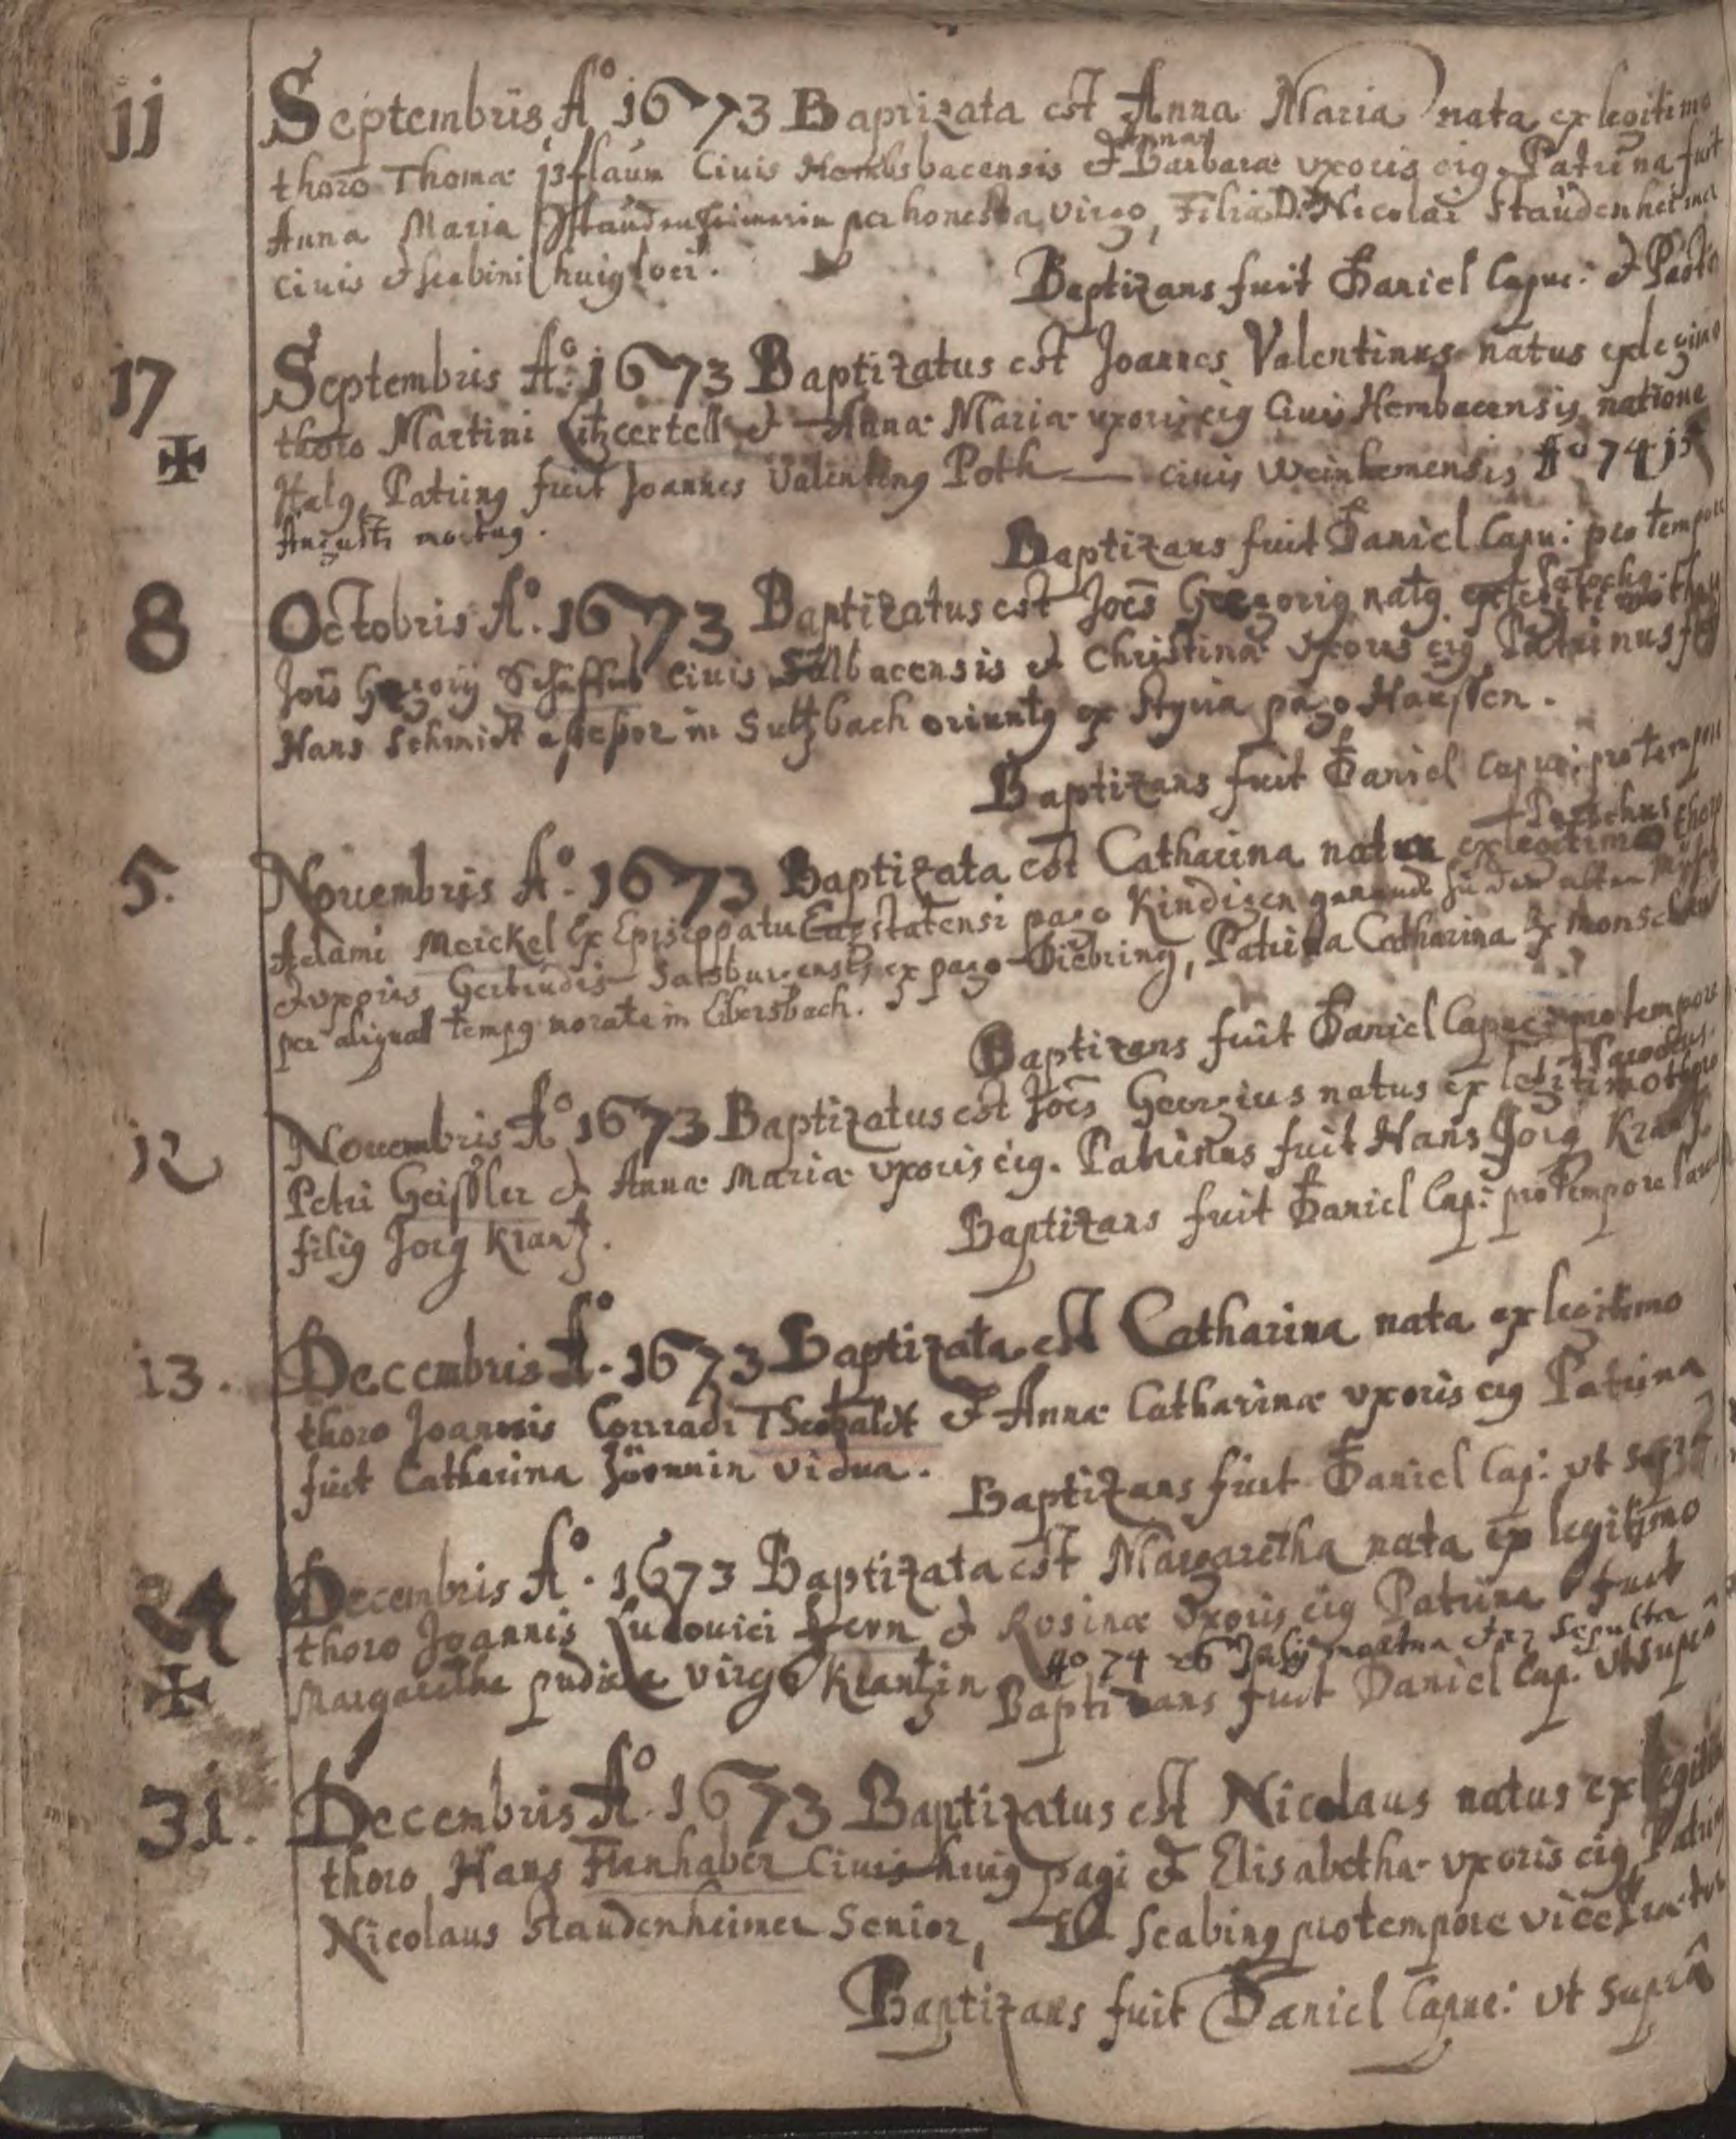 11 Septembris Aº 1673 Baptizata est Anna Maria nata ex legitimo
thoro Thomæ Civis Hembsbacensis & Annæ Barbaræ vxoris eiq. Patrina fuit
Anna Maria perhonesta virgo, Filia D. Nicolai Staudenheimer
civis & scabini huiq loci.
Baptizans fuit Daniel Capuc: & Pasto
17 Septembris Aº. 1673 Baptizatus est Joannes Valentinus natus ex legitimo
thoro Martini & Annæ Mariæ vxoris eiq Civis Hembacensis natione
Italq, Patrinq fuit Joannes Valentinq Poth — civis Weinhemensis Aº 74 15
Augusti mortuq.
Baptizans fuit Daniel Capu: pro tempore
Parochq.
8 Octobris Aº. 1673 Baptizatus est Joēs Gregoriq natq ex legitimo thoro
Jois Gregorij civis Sulbacensis & Christinæ vxoris eiq, Patrinus fuit
Hans Schmidt assessor in Sultzbach oriuntq ex Styria pago Haussen.
Baptizans fuit Daniel Capuc: pro tempore
Parochus
5. Nouembris Aº. 1673 Baptizata est Catharina nata ex legitimo thoro
Adami Merckel Ex Episcopatu Eustatensi pago Kindigen
& vxoris Gertrudis Salsburgensis, ex pago Diebring, Patrina Catharina
per aliquod tempq morata in Ebersbach.
Baptizans fuit Daniel Capuc: pro tempore
Parochus.
12 Nouembris Aº 1673 Baptizatus est Joēs Georgius natus ex legitimo thoro
Petri Geissler & Annæ Mariæ vxoris eiq. Patrinus fuit Hans Jörg Krantz
filiq Jorg Krantz.
Baptizans fuit Daniel Cap: pro tempore Paro
13. Decembris Aº. 1673 Baptizata est Catharina nata ex legitimo
thoro Joannis Conradi & Annæ Catharinæ vxoris eiq Patrina
fuit Catharina vidua.
Baptizans fuit Daniel Cap: vt suprà
24 Decembris Aº. 1673 Baptizata est Margaretha nata ex legitimo
thoro Joannis Ludouici & Rosinæ vxoris eiq Patrina fuit
Margaretha pudica virgo Krantzin Aº 74 26 Julij mortua & 27 Sepulta
Baptizans fuit Daniel Cap. vt suprà
31. Decembris Aº. 1673 Baptizatus est Nicolaus natus ex legitimo
thoro Hans Flanhaber Civis huiq pagi & Elisabethæ vxoris eiq, Patrinq
Nicolaus Staudenheimer Senior, Scabinq pro tempore vice
Baptizans fuit Daniel Capuc: vt suprà